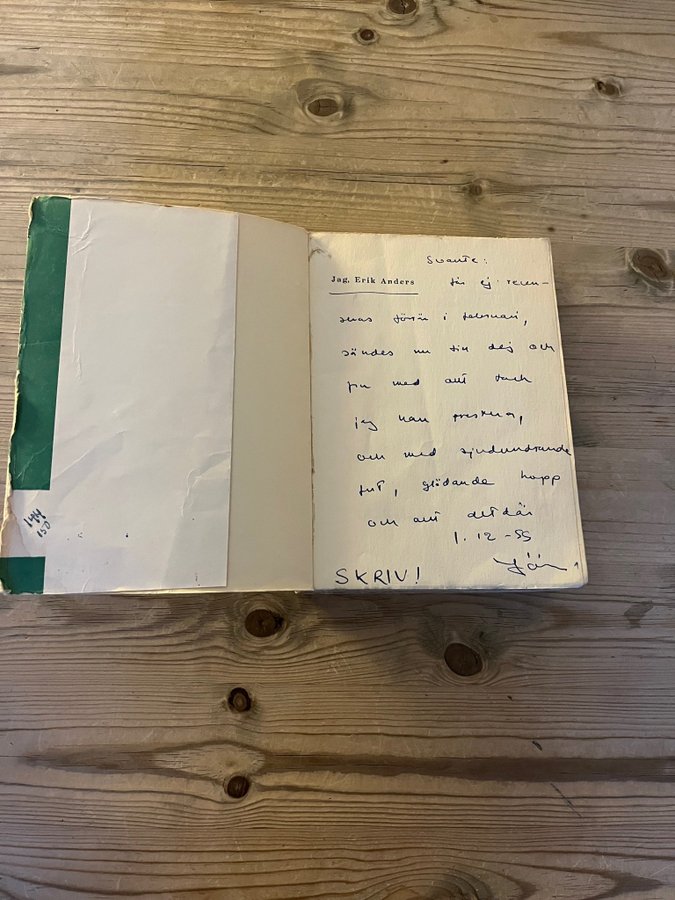 Svante:
Jag, Erik Anders får ej recen-
seras förrän i februari,
sändes nu till dej och
med allt tack
jag kan prestera,
och med sjudundrande
fut, glödande hopp
och allt det där
1.12-55
SKRIV!
144
150